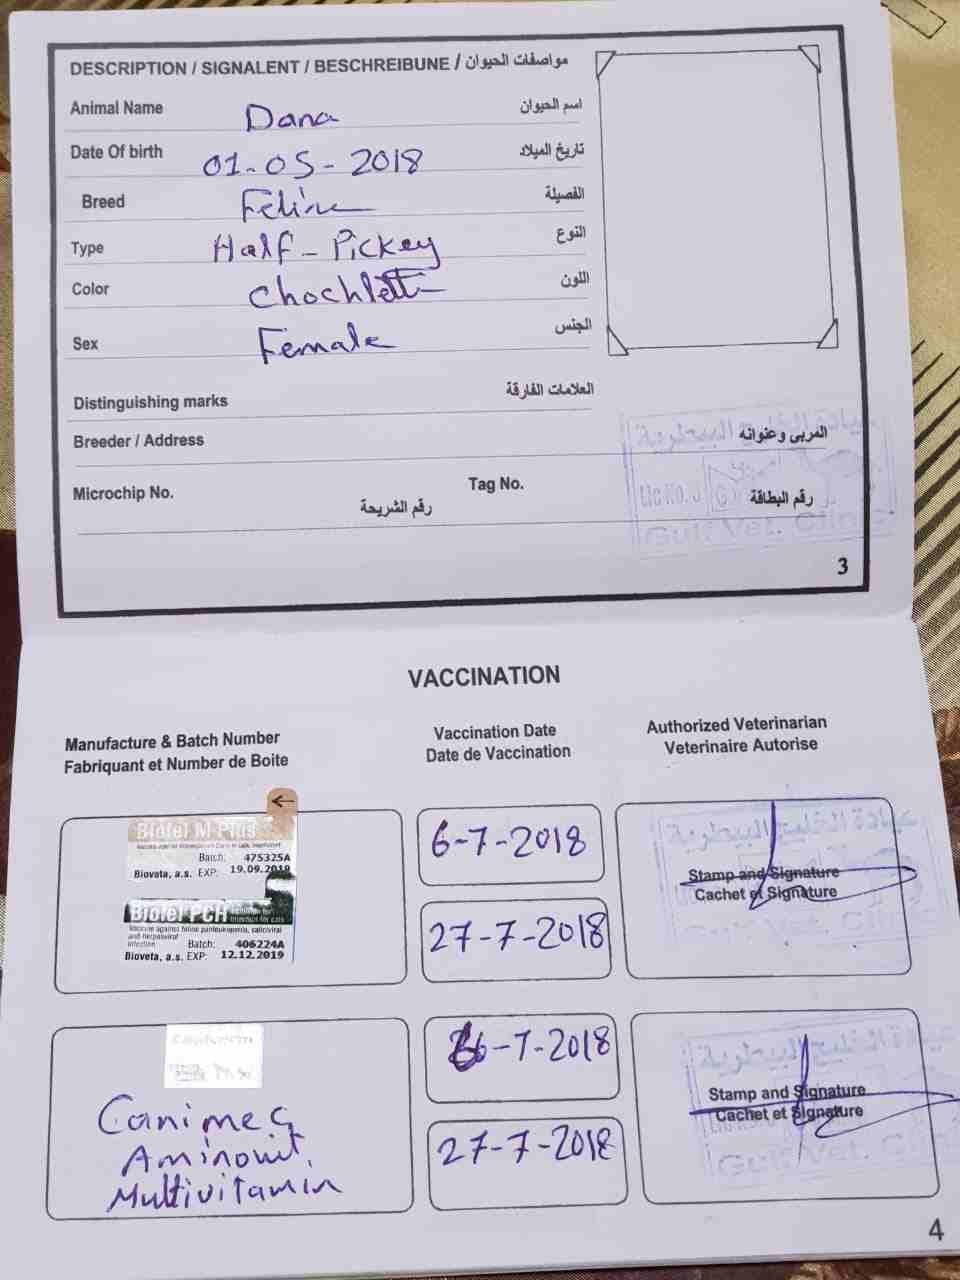 DESCRIPTION / SIGNALENT / BESCHREIBUNE / مواصفات الحيوان
Animal Name Dana اسم الحيوان
Date Of birth 01-05-2018 تاريخ الميلاد
Breed Feline الفصيلة
Type Half-Pickey النوع
Color Chochlett اللون
Sex Female الجنس
Distinguishing marks العلامات الفارقة
Breeder / Address المربى وعنوانه
Microchip No. رقم الشريحة Tag No. رقم البطاقة
عيادة الخليج البيطرية
Lic No.
Gulf Vet. Clinic
3
VACCINATION
Manufacture & Batch Number
Fabriquant et Number de Boite
Vaccination Date
Date de Vaccination
Authorized Veterinarian
Veterinaire Autorise
Biofel M Plus
Batch: 475325A
Bioveta, a.s. EXP: 19.09.2019
Biofel PCH
injection for cats
Vaccine against feline panleukopenia, caliciviral
and herpesviral
infection Batch: 406224A
Bioveta, a.s. EXP: 12.12.2019
6-7-2018
27-7-2018
عيادة الخليج البيطرية
Stamp and Signature
Cachet et Signature
Canimec
Aminovit,
Multivitamin
6-7-2018
27-7-2018
عيادة الخليج البيطرية
Stamp and Signature
Cachet et Signature
Gulf Vet. Clinic
4